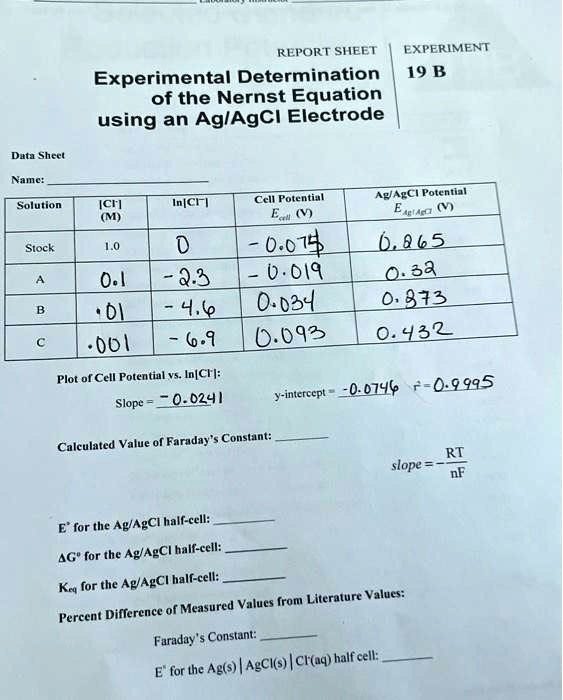 REPORT SHEET
EXPERIMENT
Experimental Determination
19 B
of the Nernst Equation
using an Ag/AgCl Electrode
Data Sheet
Name:
Solution [Cl⁻] (M) ln[Cl⁻] Cell Potential E cell (V) Ag/AgCl Potential E Ag/AgCl (V)
Stock 1.0 0 - 0.075 0.265
A 0.1 - 2.3 - 0.019 0.32
B .01 - 4.6 0.034 0.373
C .001 - 6.9 0.093 0.432
Plot of Cell Potential vs. ln[Cl⁻]:
Slope = -0.0241 y-intercept = -0.0746 r² = 0.9995
Calculated Value of Faraday's Constant:
slope = - RT
nF
E° for the Ag/AgCl half-cell:
ΔG° for the Ag/AgCl half-cell:
Keq for the Ag/AgCl half-cell:
Percent Difference of Measured Values from Literature Values:
Faraday's Constant:
E° for the Ag(s) | AgCl(s) | Cl⁻(aq) half cell: